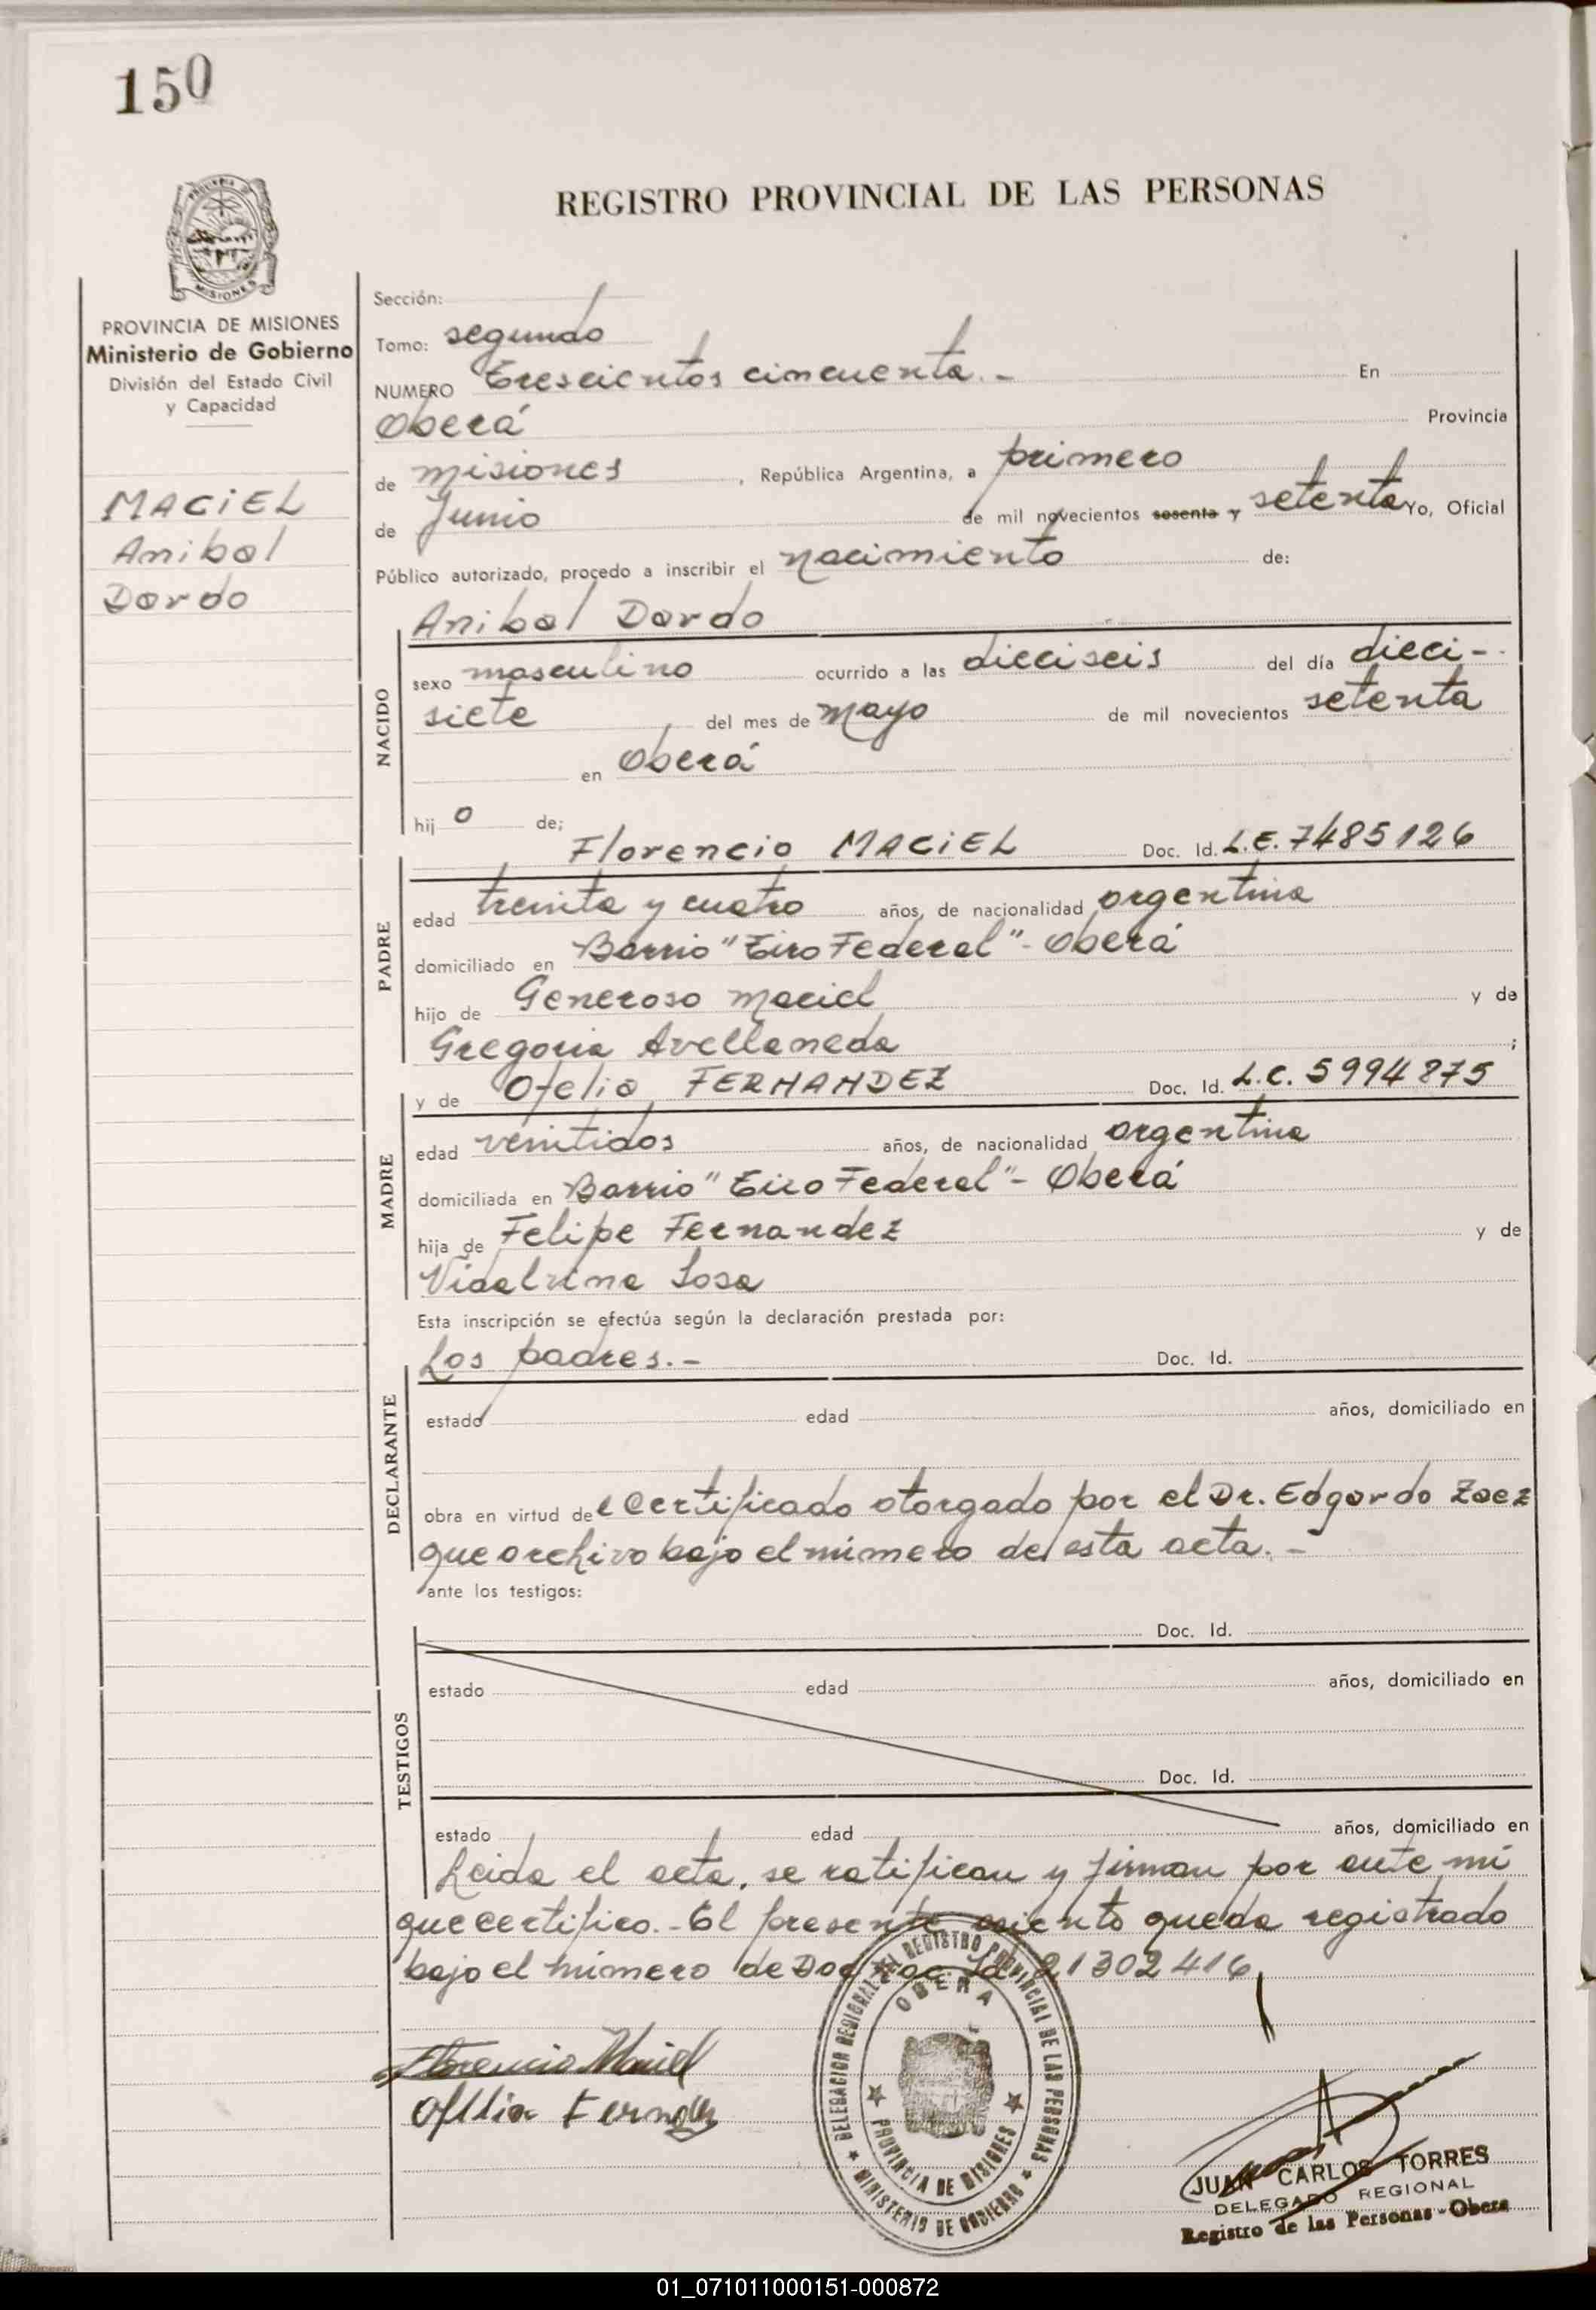 150
REGISTRO PROVINCIAL DE LAS PERSONAS
MISIONES
PROVINCIA DE MISIONES
Ministerio de Gobierno
División del Estado Civil
y Capacidad
MACIEL
Anibal
Dardo
Sección:
Tomo: segundo
NUMERO Trescientos cincuenta.- En
Oberá Provincia
de misiones, República Argentina, a primero
de Junio de mil novecientos sesenta y setenta Yo, Oficial
Público autorizado, procedo a inscribir el nacimiento de:
Anibal Dardo
NACIDO
sexo masculino ocurrido a las dieciseis del día dieci-
siete del mes de mayo de mil novecientos setenta
en Oberá
hijo de;
Florencio MACIEL Doc. Id. L.E. 7485126
PADRE
edad treinta y cuatro años, de nacionalidad argentina
domiciliado en Barrio "Tiro Federal"- Oberá
hijo de Generoso Maciel y de
Gregoria Avellaneda ;
y de Ofelia FERNANDEZ Doc. Id. L.C. 5994875
MADRE
edad veintidos años, de nacionalidad argentina
domiciliada en Barrio "Tiro Federal"- Oberá
hija de Felipe Fernandez y de
Sosa
Esta inscripción se efectúa según la declaración prestada por:
Los padres.- Doc. Id.
DECLARANTE
estado edad años, domiciliado en
obra en virtud del certificado otorgado por el Dr. Edgardo Zaez
que archivo bajo el número de esta acta.-
ante los testigos:
Doc. Id.
TESTIGOS
estado edad años, domiciliado en
Doc. Id.
estado edad años, domiciliado en
Leida el acta, se ratifican y firman por ante mi
que certifico.- El presente asiento queda registrado
bajo el número de Doc. Nac. Id. 21302416
DELEGACION REGIONAL DEL REGISTRO PROVINCIAL DE LAS PERSONAS
OBERA
PROVINCIA DE MISIONES
MINISTERIO DE GOBIERNO
Florencio Maciel
JUAN CARLOS TORRES
DELEGADO REGIONAL
Registro de las Personas - Obera
01_071011000151-000872